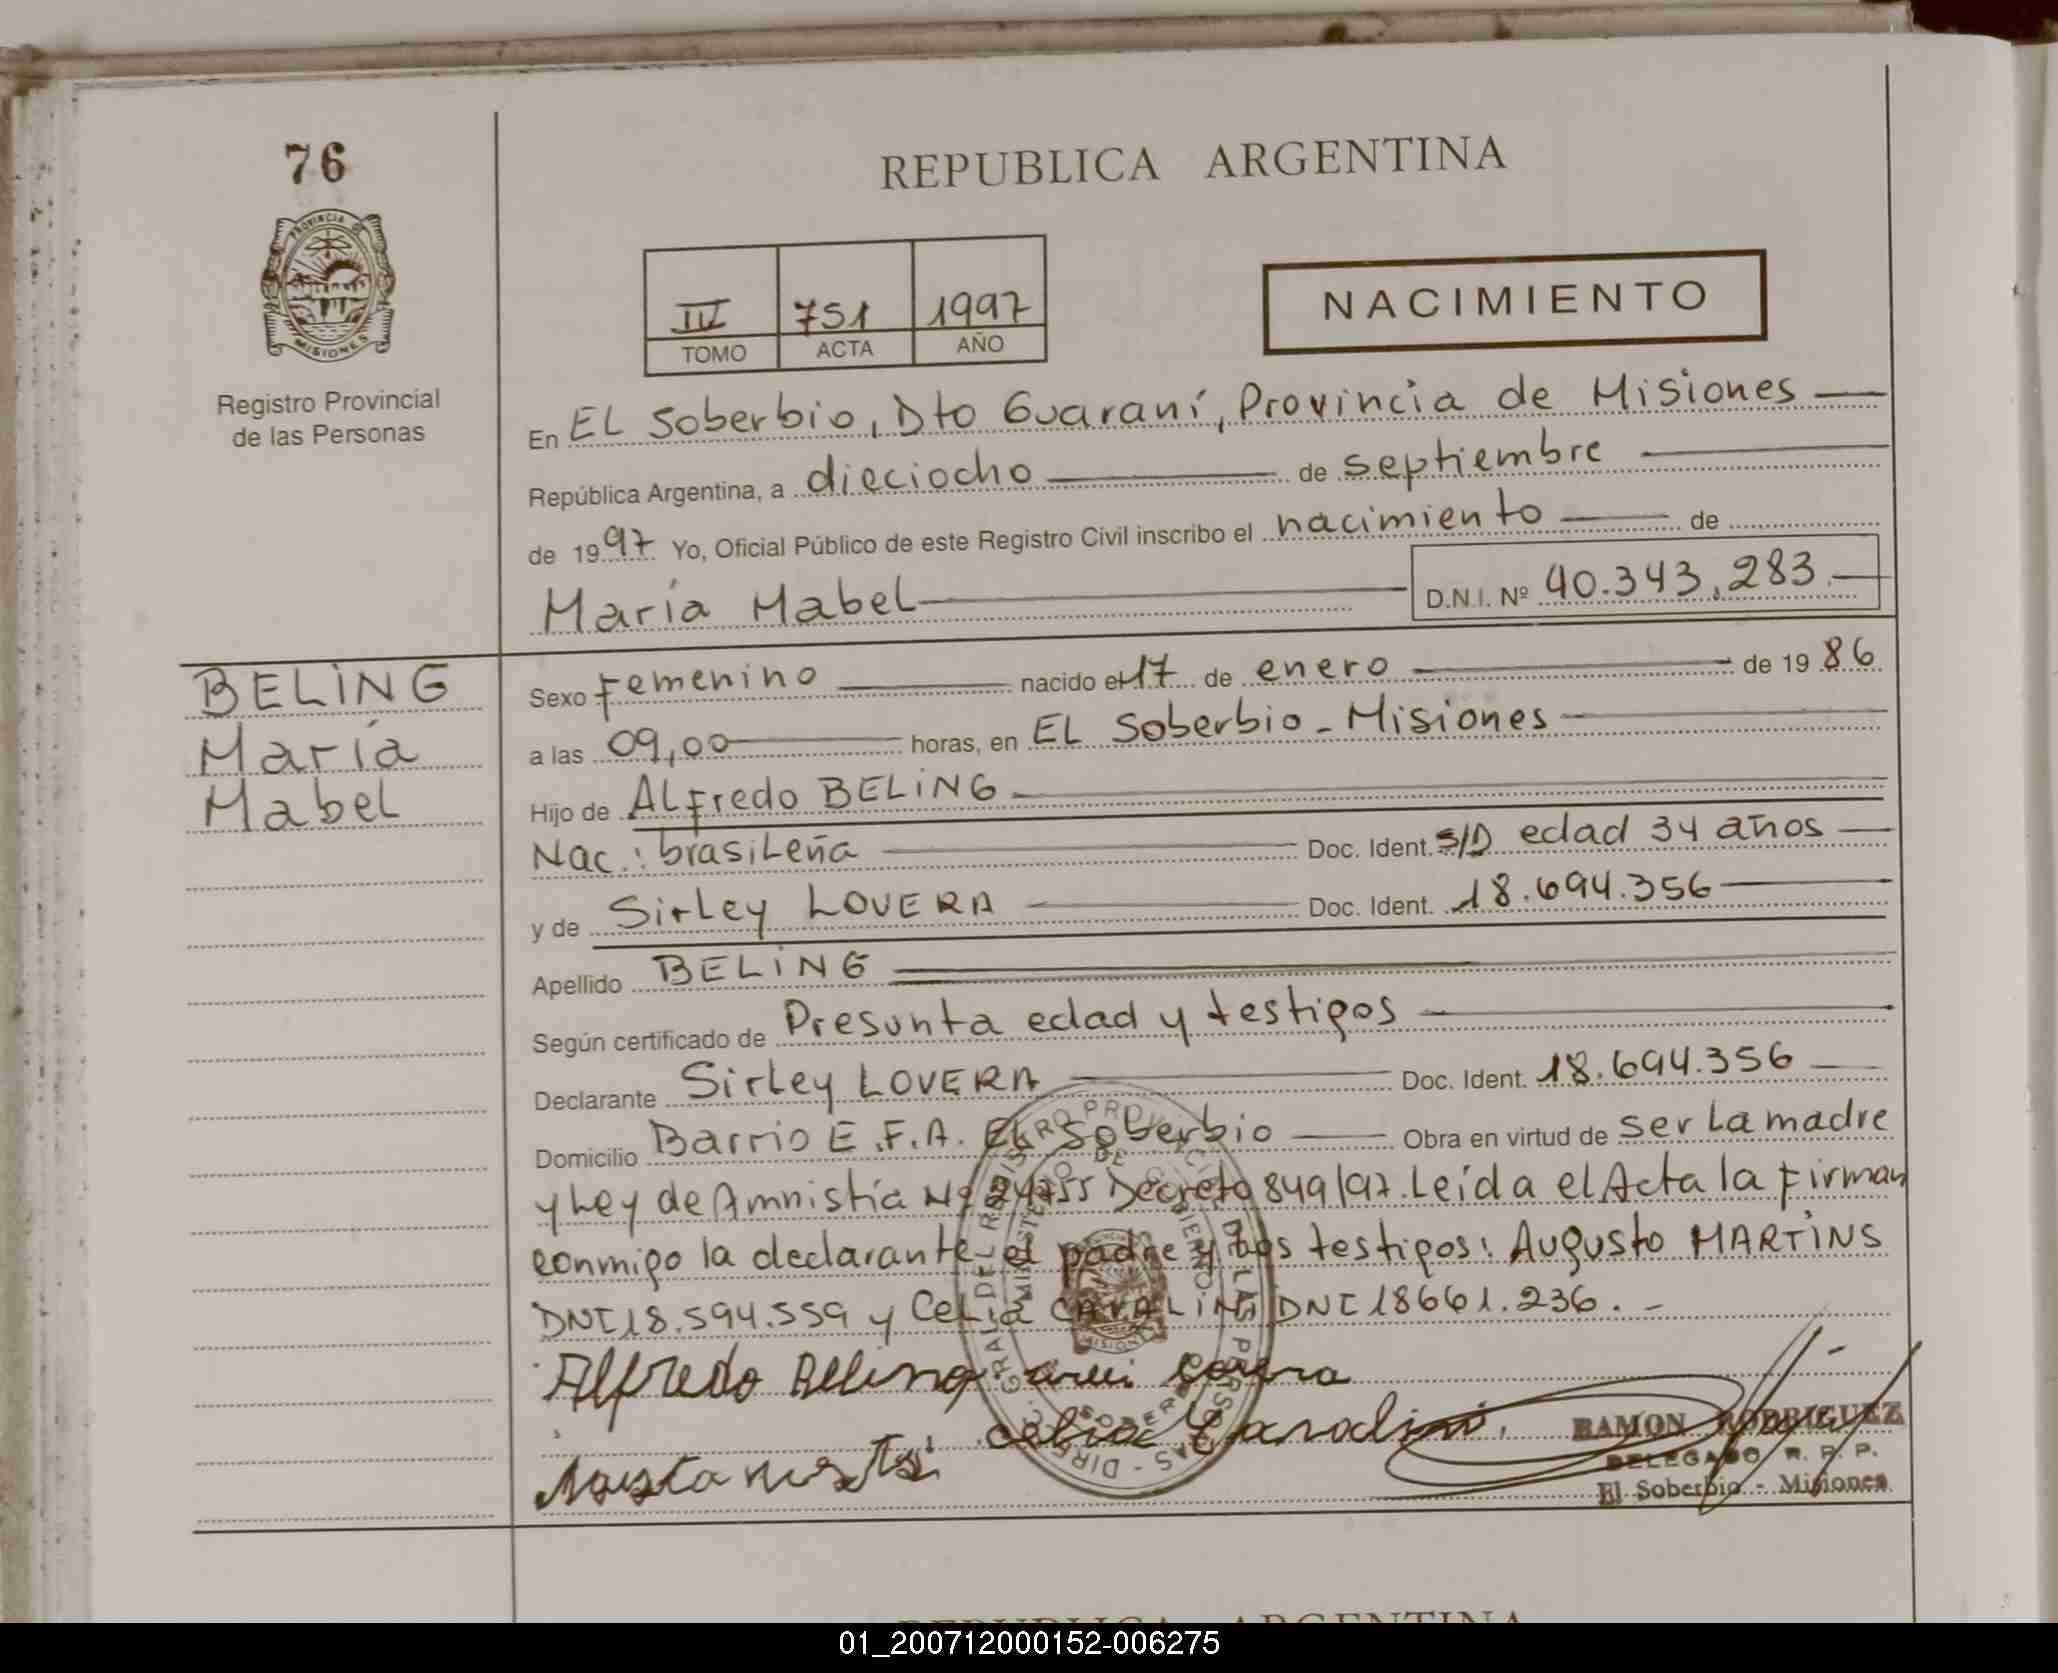 76
REPUBLICA ARGENTINA
PROVINCIA DE
MISIONES
Registro Provincial
de las Personas
IV 751 1997
TOMO ACTA AÑO
NACIMIENTO
En EL Soberbio, Dto Guaraní, Provincia de Misiones
República Argentina, a dieciocho de septiembre
de 1997 Yo, Oficial Público de este Registro Civil inscribo el nacimiento de
María Mabel D.N.I. Nº 40.343.283.
BELING
María
Mabel
Sexo Femenino nacido el 17 de enero de 1986
a las 09,00 horas, en EL Soberbio - Misiones
Hijo de ALfredo BELING
Nac.: brasileña Doc. Ident. S/D edad 34 años
y de Sirley LOVERA Doc. Ident. 18.694.356
Apellido BELING
Según certificado de Presunta edad y testigos
Declarante Sirley LOVERA Doc. Ident. 18.694.356
Domicilio Barrio E.F.A. EL Soberbio Obra en virtud de ser La madre
y Ley de Amnistía Nº 24755 Decreto 849/97. Leída el Acta la Firman
conmigo la declarante el padre y Los testigos: Augusto MARTINS
DNI 18.594.559 y Celia CAVALINI DNI 18661.236.-
Alfredo Beling
Celia Cavalini
RAMON RODRIGUEZ
DELEGADO R. P. P.
El Soberbio - Misiones
REPUBLICA ARGENTINA
01_200712000152-006275